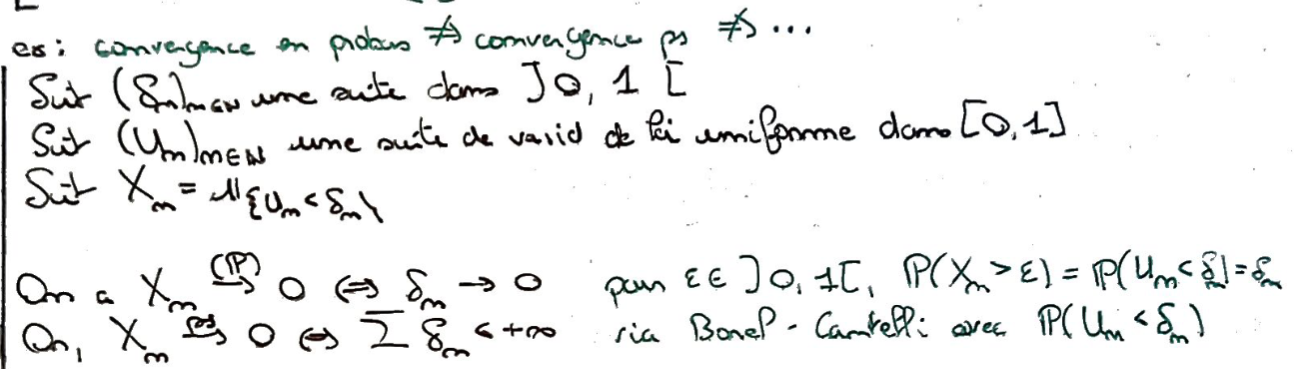 es: convergence en probas ⇏ convergence ps ⇏ ...
Soit (δₙ)ₙ∈ℕ une suite dans ]0, 1[
Soit (Uₙ)ₙ∈ℕ une suite de vaiid de loi uniforme dans [0,1]
Soit Xₙ = 𝟙{Uₙ < δₙ}
On a Xₙ →(ℙ) 0 ⇔ δₙ → 0 pour ε ∈ ]0, 1[, ℙ(Xₙ > ε) = ℙ(Uₙ < δₙ) = δₙ
Or, Xₙ →ps 0 ⇔ Σ δₙ < +∞ via Borel-Cantelli avec ℙ(Uₙ < δₙ)